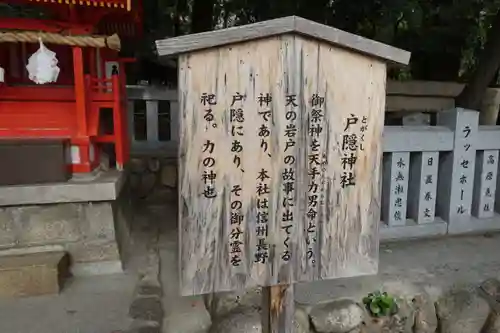 とがくし
戸隠神社
御祭神を天手力男命という。
天の岩戸の故事に出てくる
神であり、本社は信州長野
戸隠にあり、その御分霊を
祀る。力の神也
ラッセホール